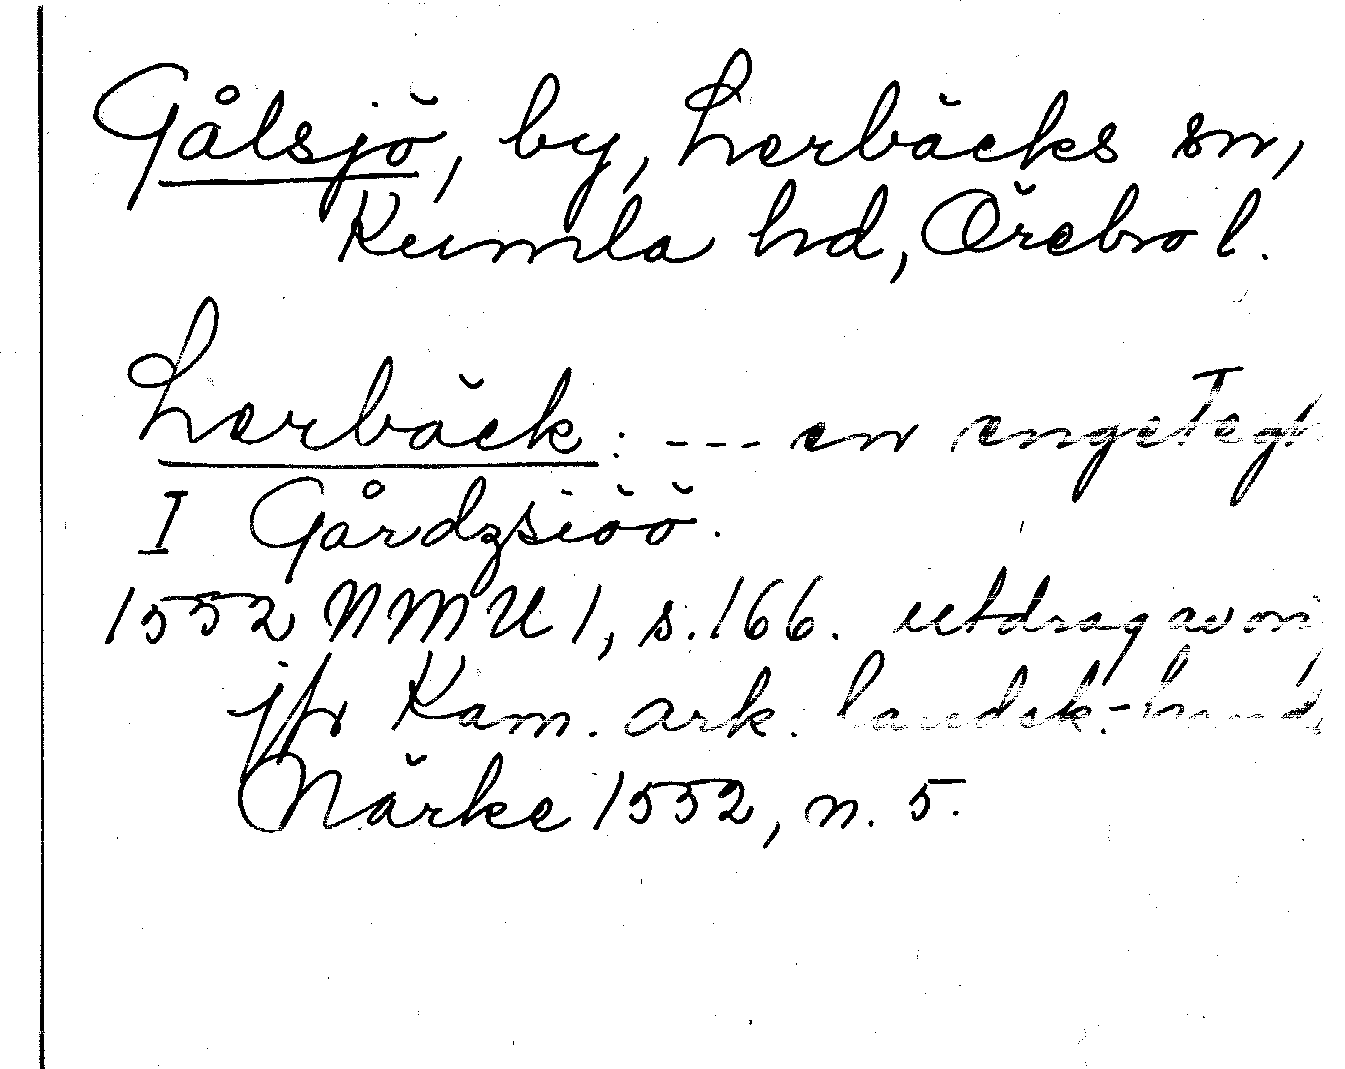 Gålsjö, by, Lerbäcks sn,
Kumla hd, Örebro l.
Lerbäck: --- en engeteg
I Gårdzsiöö.
1552 NMU 1, s. 166. utdrag av
jfr Kam. ark. landsk.-hand
Närke 1552, n. 5.